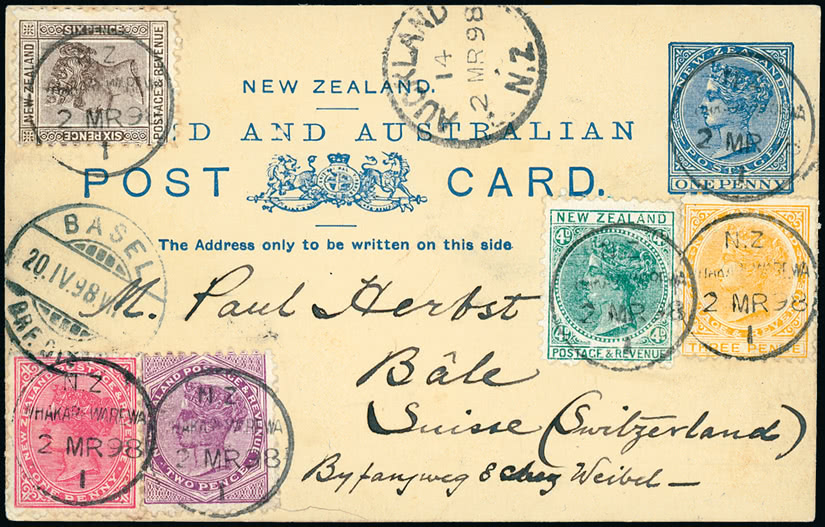 NEW ZEALAND
SIXPENCE
POSTAGE & REVENUE
SIXPENCE
N.Z
WAREWA
2 MR 98
1
AUCKLAND
14
2 MR 98
N.Z
NEW ZEALAND.
D AND AUSTRALIAN
POST CARD.
The Address only to be written on this side
NEW ZEALAND
POSTAGE
ONE PENNY
2 MR
1
BASEL
20.IV.98
BRF.
M. Paul Herbst
Bâle
Suisse (Switzerland)
Byfangweg 8 chez Weibel —
NEW ZEALAND
4D
4D
4D
POSTAGE & REVENUE
2 MR 98
1
N.Z
WHAKAREWAREWA
2 MR 98
1
THREE PENCE
N Z
WHAKAREWAREWA
2 MR 98
1
ONE PENNY
N Z
2 MR 98
1
TWO PENCE